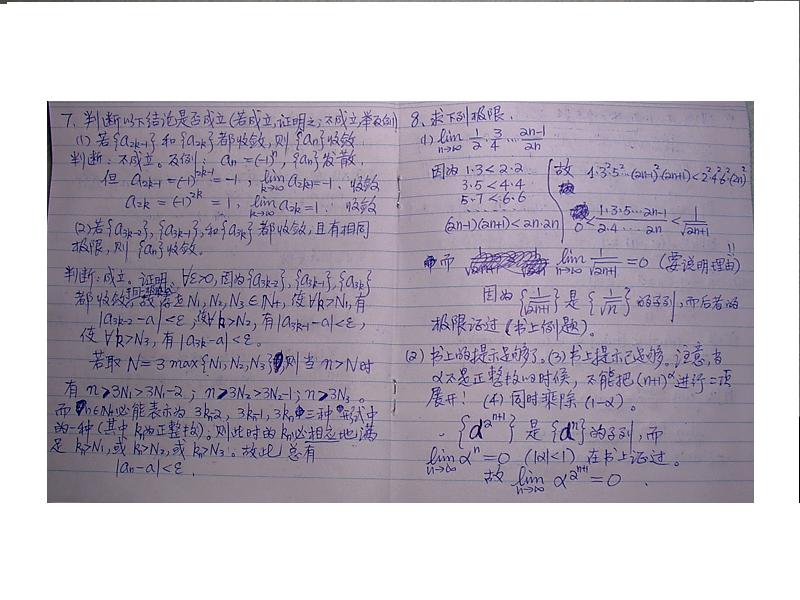 7、判断以下结论是否成立(若成立,证明之;不成立,举反例)
(1) 若{a_{2k-1}}和{a_{2k}}都收敛,则{a_n}收敛.
判断:不成立。反例:a_n=(-1)^n,{a_n}发散.
但 a_{2k-1}=(-1)^{2k-1}=-1, lim_{k→∞} a_{2k-1}=-1. 收敛
a_{2k}=(-1)^{2k}=1, lim_{k→∞} a_{2k}=1. 收敛
(2) 若{a_{3k-2}},{a_{3k-1}},和{a_{3k}}都收敛,且有相同
极限,则{a_n}收敛.
判断:成立。证明.∀ε>0,因为{a_{3k-2}},{a_{3k-1}},{a_{3k}}
都收敛,故存在N₁,N₂,N₃∈ℕ₊,使∀k>N₁,有
|a_{3k-2}-a|<ε,使∀k>N₂,有|a_{3k-1}-a|<ε,
使∀k>N₃,有|a_{3k}-a|<ε.
若取N=3max{N₁,N₂,N₃},则当n>N时
有 n>3N₁>3N₁-2; n>3N₂>3N₂-1; n>3N₃.
而n∈N₊必能表示为3k_n-2, 3k_n-1, 3k_n三种形式中
的一种(其中k_n为正整数)。则此时的k_n必相应地满
足k_n>N₁,或k_n>N₂,或k_n>N₃。故此总有
|a_n-a|<ε.
8、求下列极限.
(1) lim_{n→∞} 1/2·3/4…(2n-1)/2n
因为 1·3<2·2
3·5<4·4
5·7<6·6
……
(2n-1)(2n+1)<2n·2n
故 1·3²·5²…(2n-1)²(2n+1)<2²4²6²…(2n)²
0<(1·3·5…2n-1)/(2·4…2n)<1/√(2n+1)
而 lim_{n→∞} 1/√(2n+1)=0 (要说明理由!!)
因为{1/√(2n+1)}是{1/√n}的子列,而后者的
极限证过(书上例题)。
(2) 书上的提示足够了。(3)书上提示已足够。注意,当
α不是正整数的时候,不能把(n+1)^α进行二项
展开! (4) 同时乘除(1-α)。
{α^{2^{n+1}}}是{α^n}的子列,而
lim_{n→∞} α^n=0 (|α|<1)在书上证过。
故 lim_{n→∞} α^{2^{n+1}}=0.